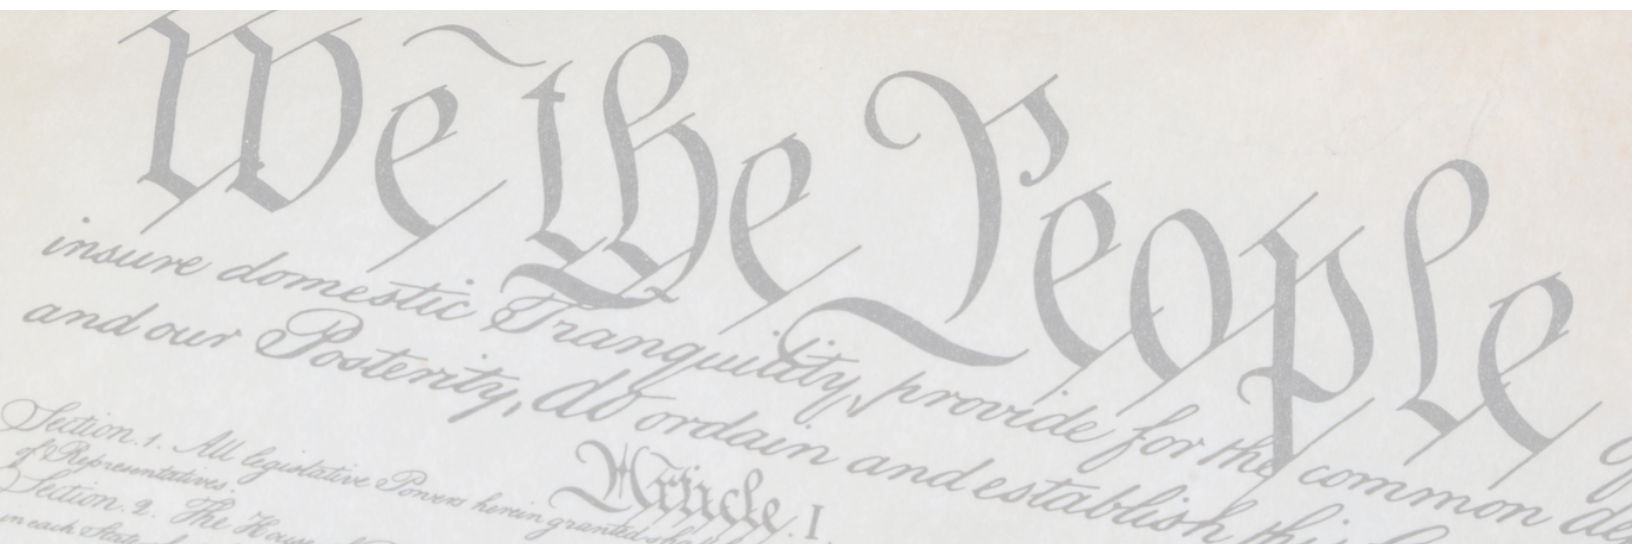 We the People
insure domestic Tranquility, provide for the common de
and our Posterity, do ordain and establish this
Article. I.
Section. 1. All legislative Powers herein granted sha
of Representatives.
Section. 2. The House
in each State